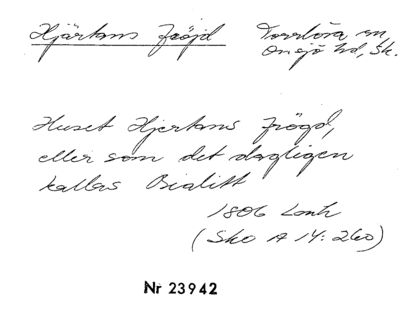 Hjärtans Fröjd Torrlösa sn,
Onsjö hd, Sk.
Huset Hjertans Frögd,
eller som det dagligen
kallas Bialitt
1806 Lanh
(Sko A 14: 260)
Nr 23942